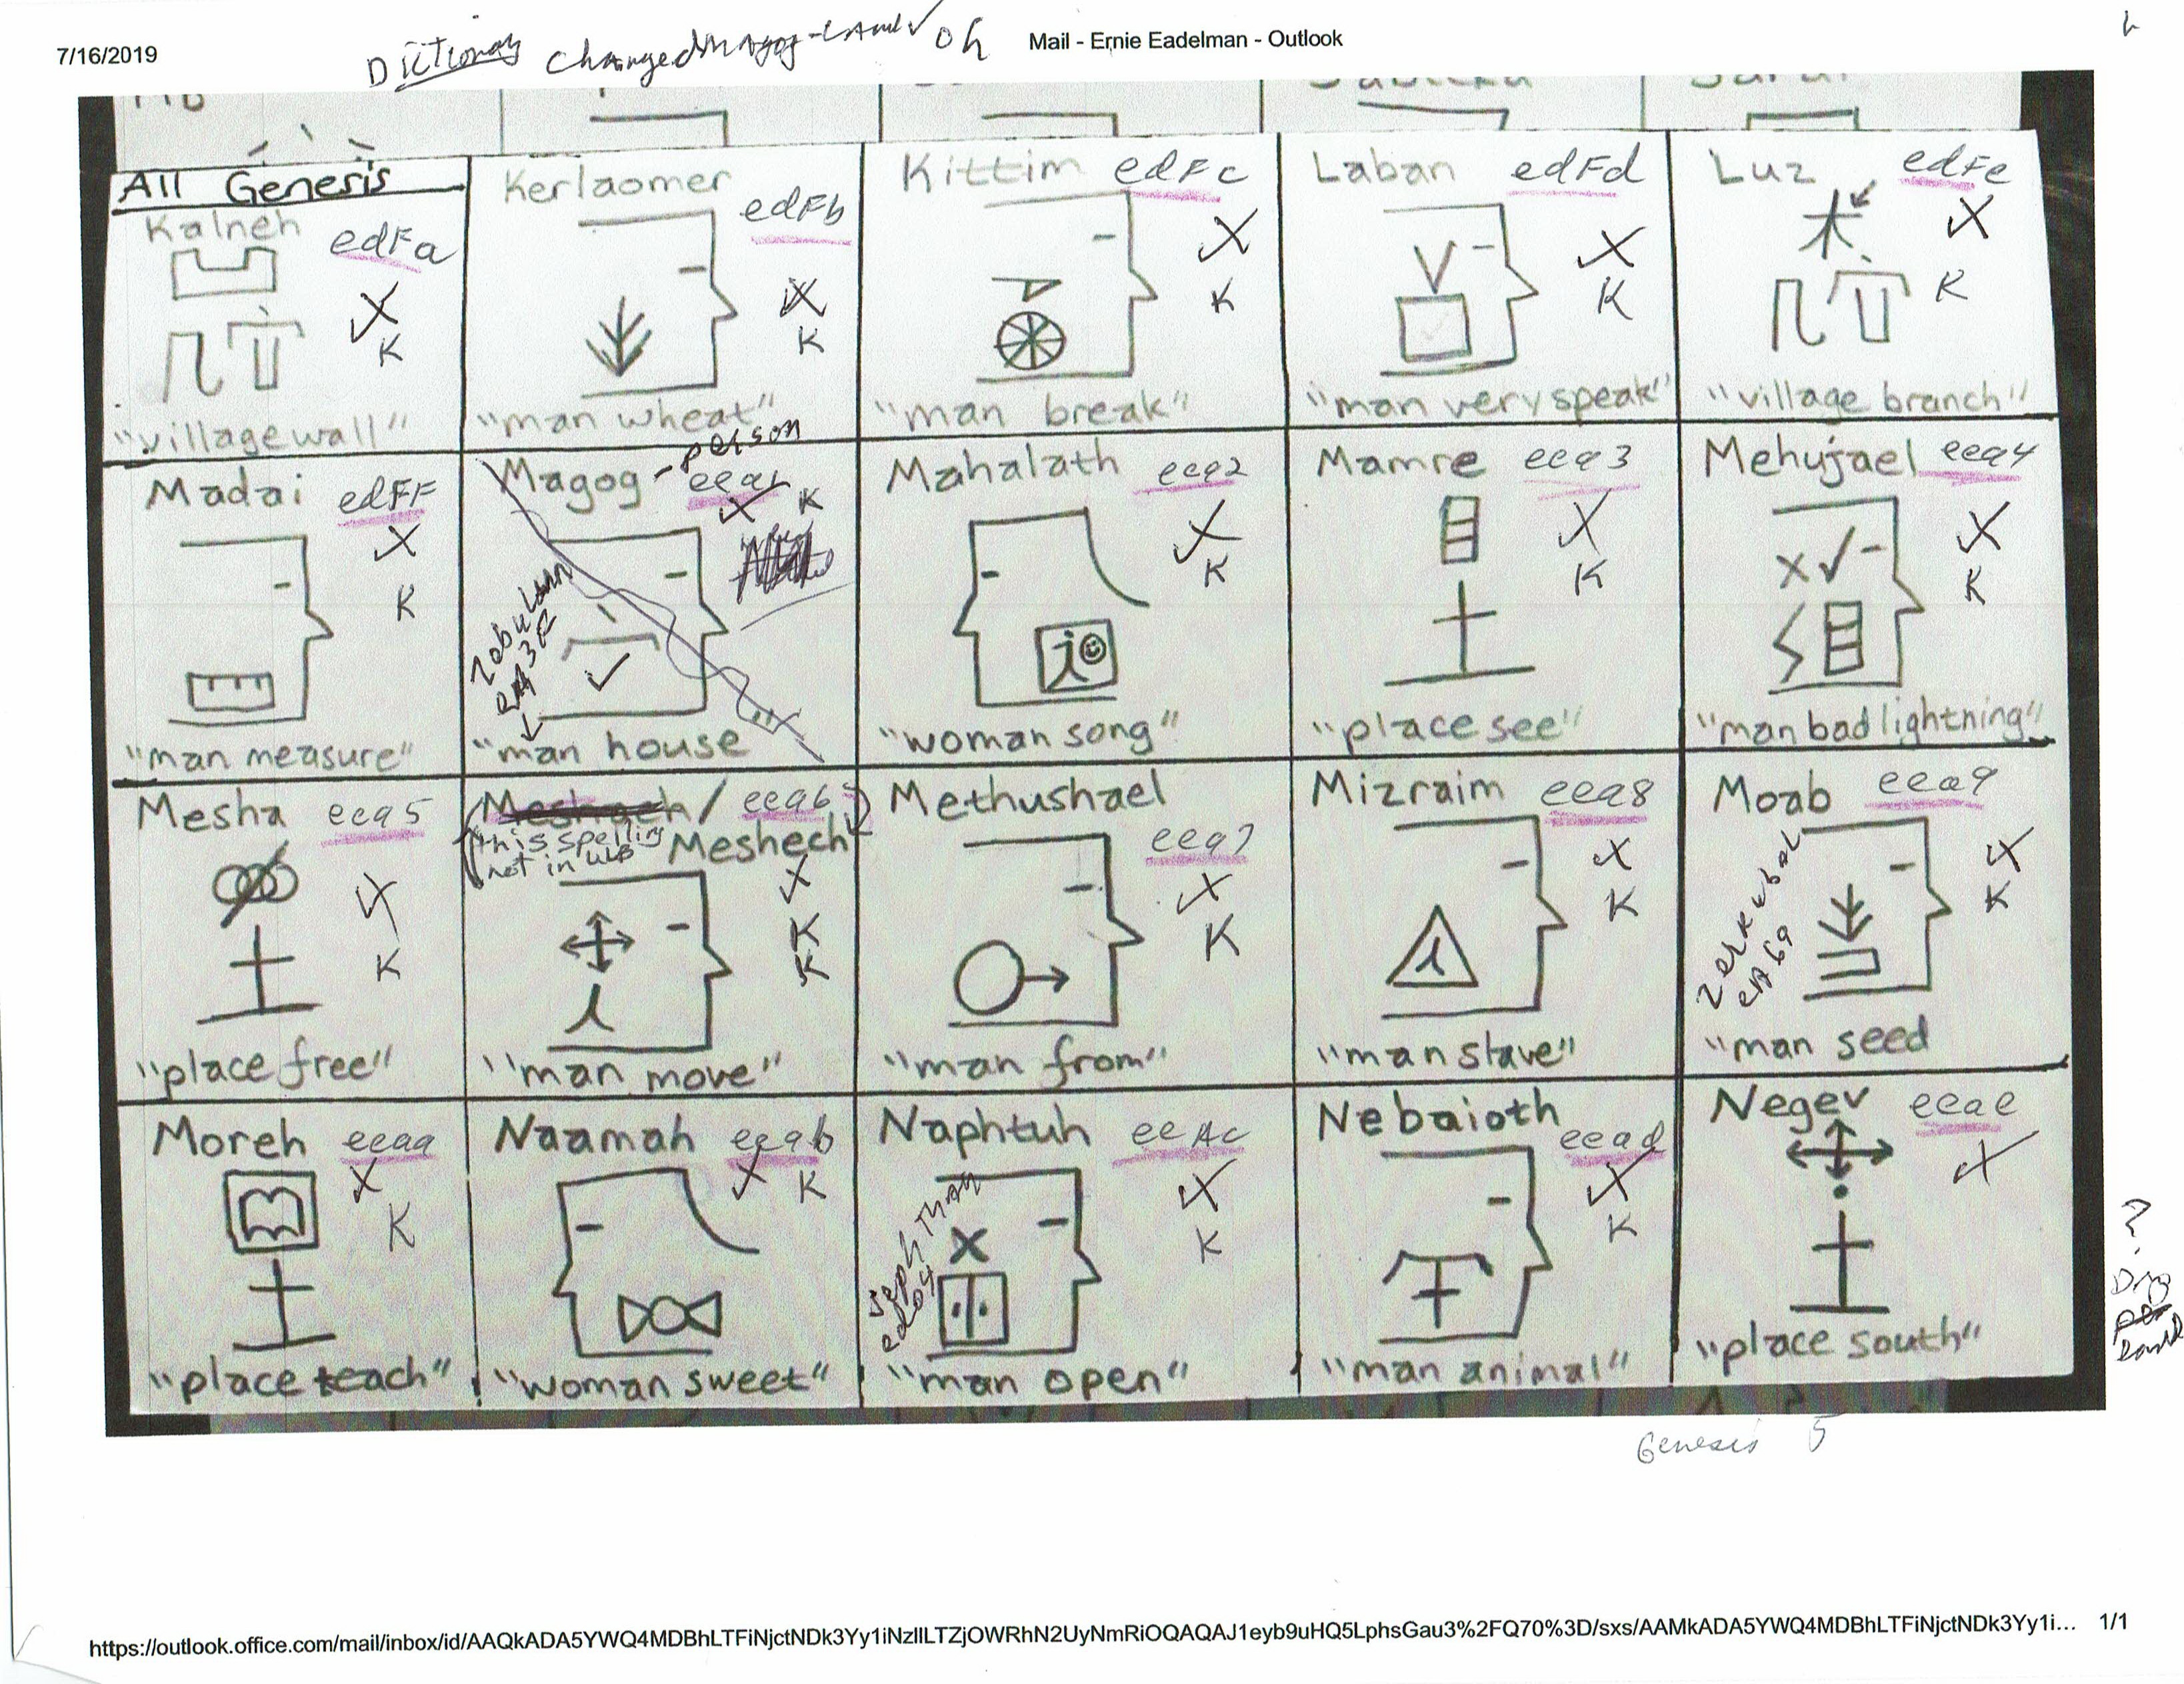 7/16/2019
Dictionary Changed Magog - Land ✓ oh
Mail - Ernie Eadelman - Outlook
All Genesis
Kalneh edFa
X
K
"village wall"
Kerlaomer
edFb
X
K
"man wheat"
Kittim edFc
X
K
"man break"
Laban edFd
X
K
"man very speak"
Luz edFe
X
K
"village branch"
Madai edFF
X
K
"man measure"
Magog - person
eea1
X K
Zebulun
"man house"
Mahalath eea2
X
K
"woman song"
Mamre eea3
X
K
"place see"
Mehujael eea4
X
K
"man bad lightning"
Mesha eea5
X
K
"place free"
Meshach / eea6
(this spelling Meshech
not in ULB
X
K
K
"man move"
Methushael
eea7
X
K
"man from"
Mizraim eea8
X
K
"man slave"
Moab eea9
X
K
"man seed
Moreh eeaa
X
K
"place teach"
Naamah eeab
X K
"woman sweet"
Naphtuh eeAc
X
K
Jephthah
ed04
"man open"
Nebaioth
eead
X
K
"man animal"
Negev eeae
X
"place south"
?
Dry
Land
Genesis 5
https://outlook.office.com/mail/inbox/id/AAQkADA5YWQ4MDBhLTFiNjctNDk3Yy1iNzllLTZjOWRhN2UyNmRiOQAQAJ1eyb9uHQ5LphsGau3%2FQ70%3D/sxs/AAMkADA5YWQ4MDBhLTFiNjctNDk3Yy1i... 1/1